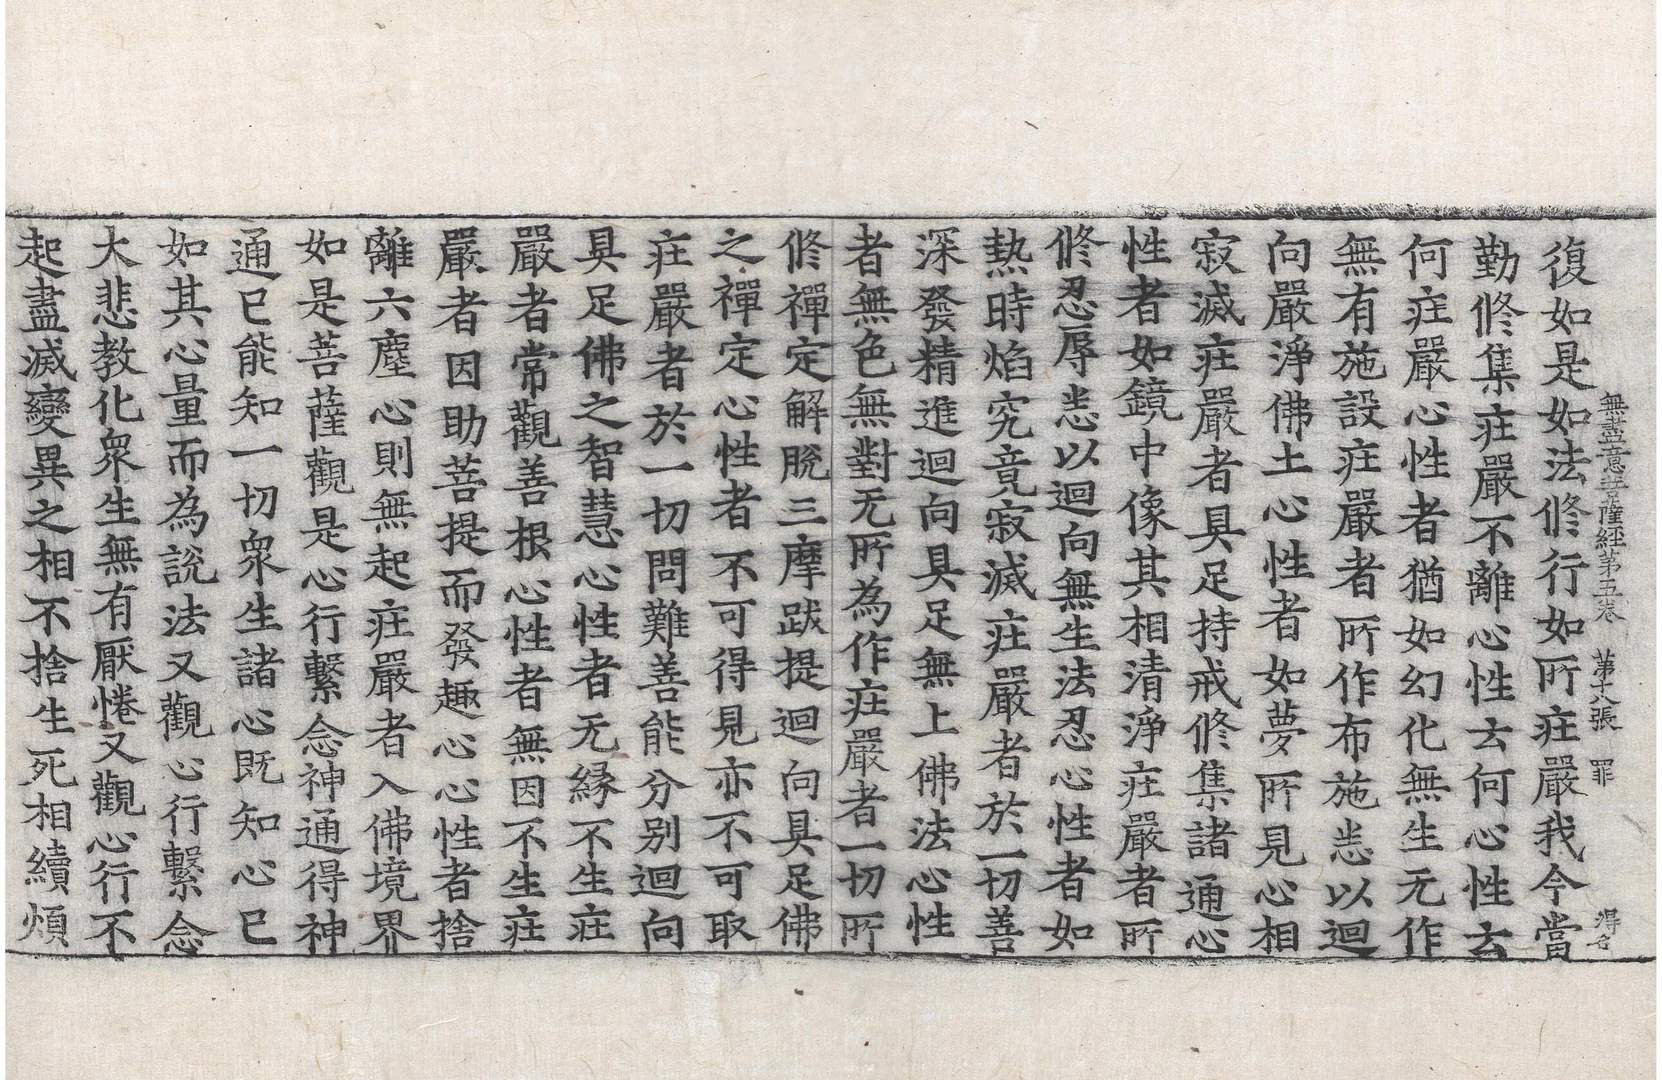 無盡意菩薩經第五卷 第十八張 罪 得名
復如是如法修行如所疘嚴我今當
勤修集疘嚴不離心性去何心性玄
何疘嚴心性者猶如幻化無生无作
無有施設疘嚴者所作布施悉以迴
向嚴淨佛土心性者如夢所見心相
寂滅疘嚴者具足持戒修集諸通心
性者如鏡中像其相清淨疘嚴者所
修忍辱悉以迴向無生法忍心性者如
熱時焰究竟寂滅疘嚴者於一切善
深發精進迴向具足無上佛法心性
者無色無對无所為作疘嚴者一切所
修禪定解脫三摩跋提迴向具足佛
之禪定心性者不可得見亦不可取
疘嚴者於一切問難善能分别迴向
具足佛之智慧心性者无縁不生疘
嚴者常觀善根心性者無因不生疘
嚴者因助菩提而發趣心心性者捨
離六塵心則無起疘嚴者入佛境界
如是菩薩觀是心行繫念神通得神
通已能知一切衆生諸心既知心已
如其心量而為說法又觀心行繫念
大悲教化衆生無有厭惓又觀心行不
起盡滅變異之相不捨生死相續煩